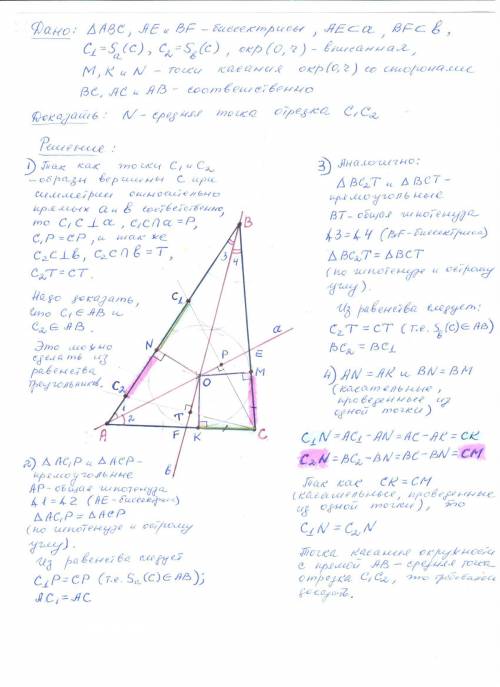 Дано: △ABC, AE и BF – биссектрисы, AE⊂a, BF⊂b,
C₁=Sₐ(C), C₂=S_b(C), окр(O,r) – вписанная,
M, K и N – точки касания окр(O,r) со сторонами
BC, AC и AB – соответственно
Доказать: N – средняя точка отрезка C₁C₂
Решение:
1) Так как точки C₁ и C₂
– образы вершины C при
симметрии относительно
прямых a и b соответственно,
то C₁C⊥a, C₁C∩a=P,
C₁P=CP, и так же
C₂C⊥b, C₂C∩b=T,
C₂T=CT.
Надо доказать,
что C₁∈AB и
C₂∈AB.
Это можно
сделать из
равенства
треугольников.
B
3
4
C₁
a
N
P
E
M
O
C₂
T
1
2
A
F
K
C
b
2) △AC₁P и △ACP –
прямоугольные
AP – общая гипотенуза
∠1=∠2 (AE – биссектриса)
△AC₁P=△ACP
(по гипотенузе и острому
углу).
Из равенства следует
C₁P=CP (т.е. Sₐ(C)∈AB);
AC₁=AC
3) Аналогично:
△BC₂T и △BCT –
прямоугольные
BT – общая гипотенуза
∠3=∠4 (BF – биссектриса)
△BC₂T=△BCT
(по гипотенузе и острому
углу).
Из равенства следует:
C₂T=CT (т.е. S_b(C)∈AB)
BC₂=BC₁
4) AN=AK и BN=BM
(касательные,
проведенные из
одной точки)
C₁N=AC₁–AN=AC–AK=CK
C₂N=BC₂–BN=BC–BN=CM
Так как CK=CM
(касательные, проведенные
из одной точки), то
C₁N=C₂N
Точка касания окружности
с прямой AB – средняя точка
отрезка C₁C₂, что требовалось
доказать.